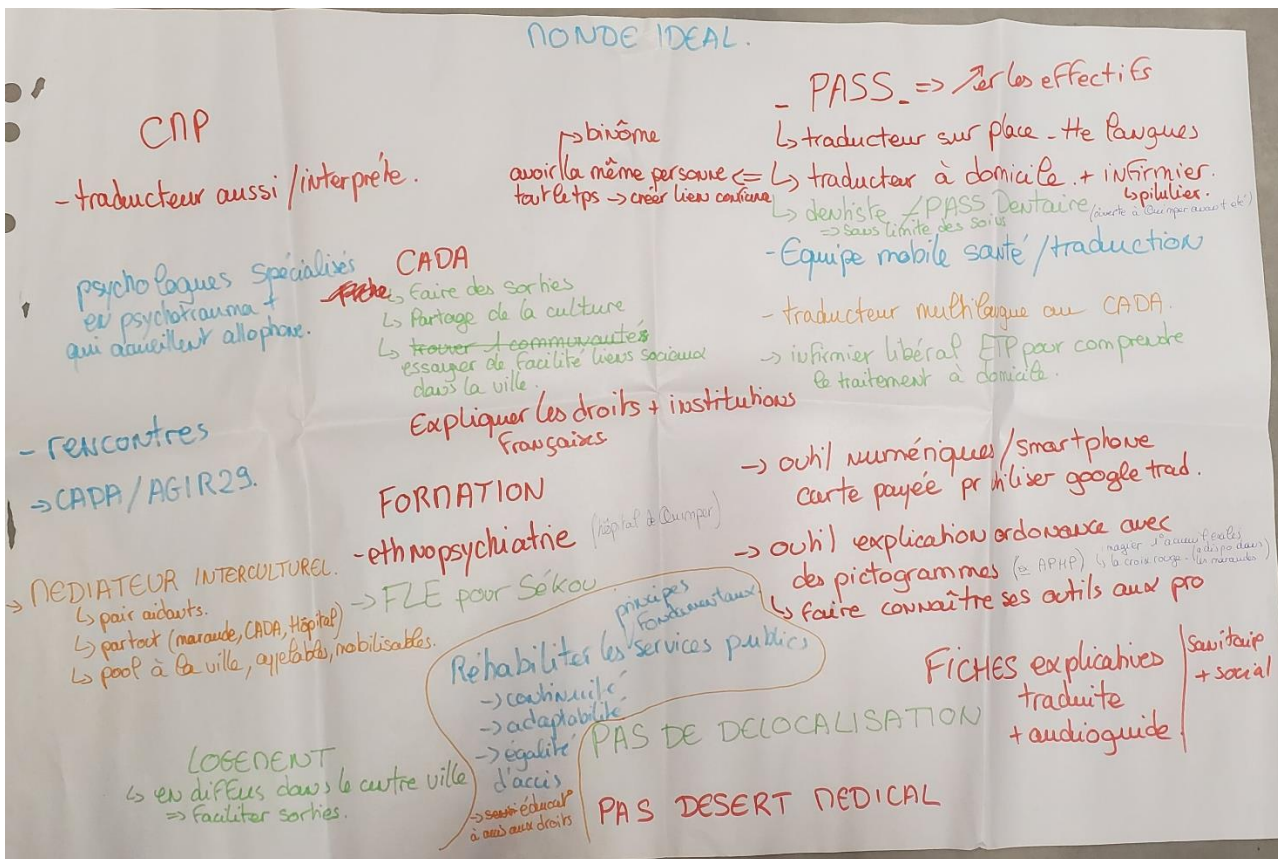 MONDE IDEAL.
CMP
- traducteur aussi / interprète.
psychologues spécialisés
en psychotrauma +
qui accueillent allophone.
- rencontres
→ CADA / AGIR29.
→ MEDIATEUR INTERCULTUREL.
↳ pair aidants.
↳ partout (maraude, CADA, Hôpital)
↳ pool à la ville, appelables, mobilisables.
LOGEMENT
↳ en diffus dans le centre ville
⇒ faciliter sorties.
↱ binôme
avoir la même personne <=
tout le tps → créer lien confiance
CADA
↳ Faire des sorties
↳ Partage de la culture
↳ trouver 1 communautés
essayer de facilité liens sociaux
dans la ville.
Expliquer les droits + institutions
françaises
FORMATION
- ethnopsychiatrie (hôpital de Quimper)
→ FLE pour Sékou
principes
fondamentaux
Réhabiliter les services publics
→ continuité
→ adaptabilité
→ égalité
d'accès
→ éducat°
à accès aux droits
PAS DE DELOCALISATION
PAS DESERT MEDICAL
- PASS - => ↗er les effectifs
↳ traducteur sur place - tte langues
↳ traducteur à domicile. + infirmier.
↳ pilulier.
↳ dentiste / PASS Dentaire (ouverte à Quimper avant été)
=> sans limite des soins
- Equipe mobile santé / traduction
- traducteur multilangue au CADA.
→ infirmier libéral ETP pour comprendre
le traitement à domicile.
→ outil numériques / smartphone
carte payée pr utiliser google trad.
→ outil explication ordonance avec
des pictogrammes (ex APHP)
↳ la croix rouge
↳ faire connaître ses outils aux pro
FICHES explicatives
traduite
+ audioguide
sanitaire
+ social